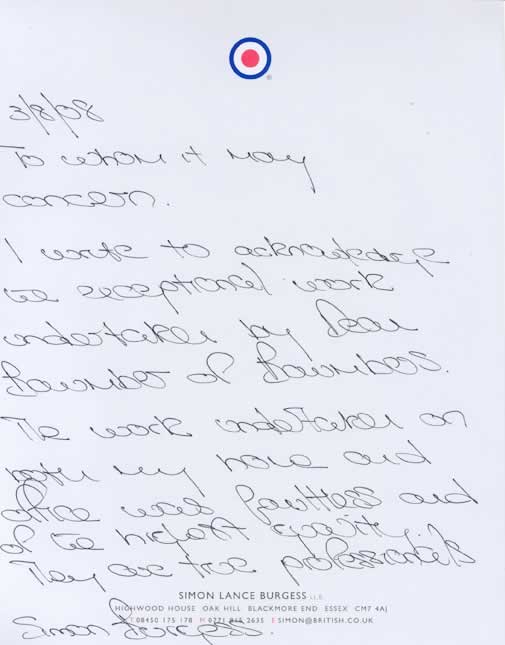 3/8/08
To whom it may
concern.
I write to acknowledge
the exceptional work
undertaken by Dean
of
The work undertaken on
both my home and
office was faultless and
of the highest quality.
They are true professionals
SIMON LANCE BURGESS LLB
HIGHWOOD HOUSE OAK HILL BLACKMORE END ESSEX CM7 4AJ
T 08450 175 178 M 0771 815 2635 E SIMON@BRITISH.CO.UK
Simon Burgess.